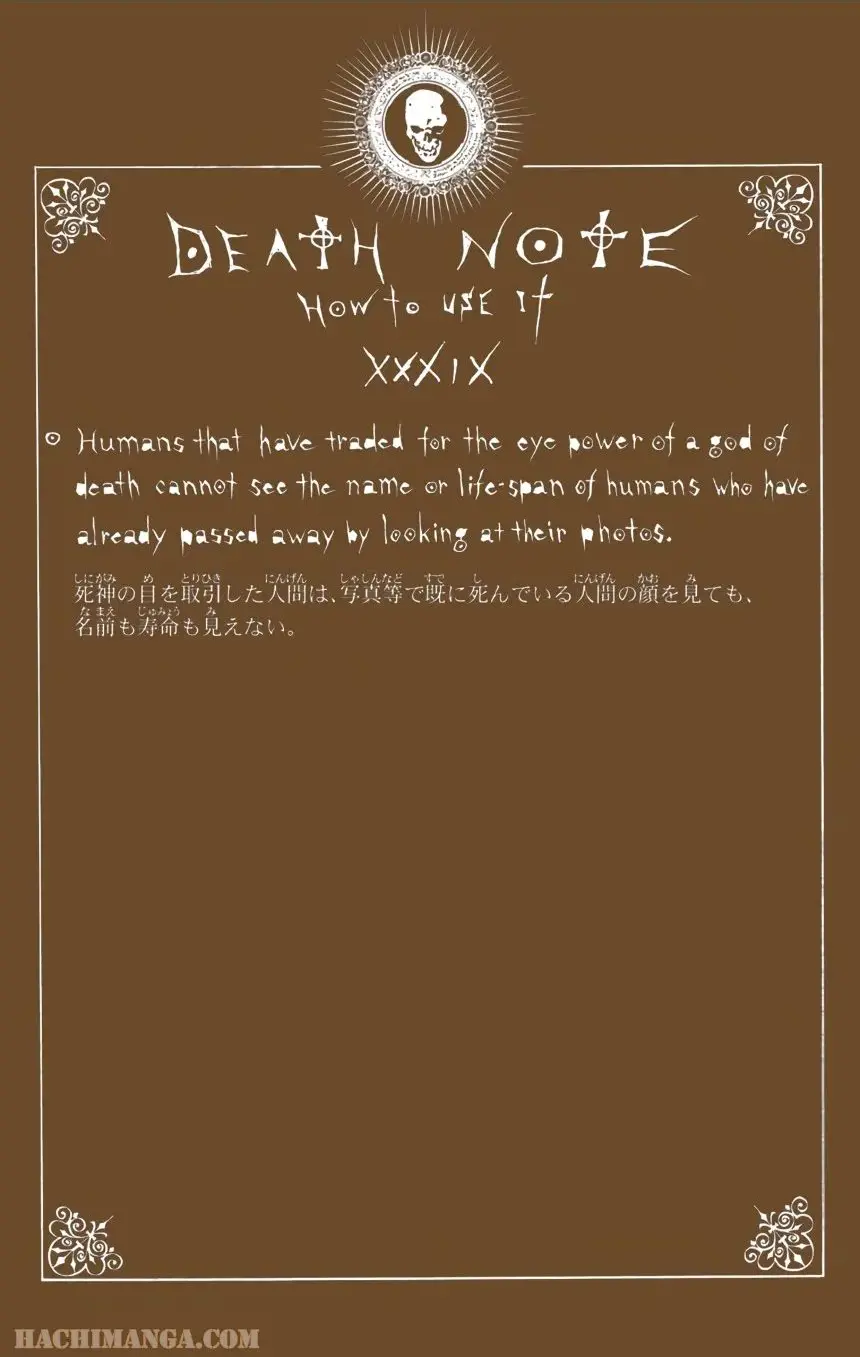 DEATH NOTE
How to use it
XXXIX
Humans that have traded for the eye power of a god of
death cannot see the name or life-span of humans who have
already passed away by looking at their photos.
しにがみ め とりひき にんげん しゃしんなど すで し にんげん かお み
死神の目を取引した人間は、写真等で既に死んでいる人間の顔を見ても、
なまえ じゅみょう み
名前も寿命も見えない。
HACHIMANGA.COM